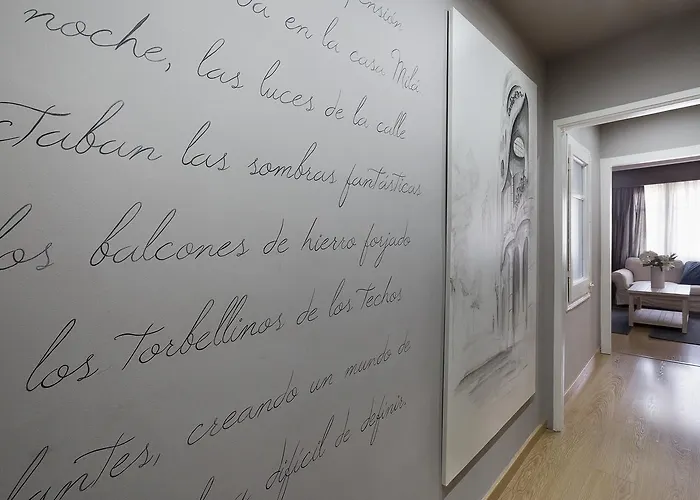 pensión
en la casa Milá
noche, las luces de la calle
ctaban las sombras fantásticas
los balcones de hierro forjado
los torbellinos de los techos
lantes, creando un mundo de
difícil de definir.